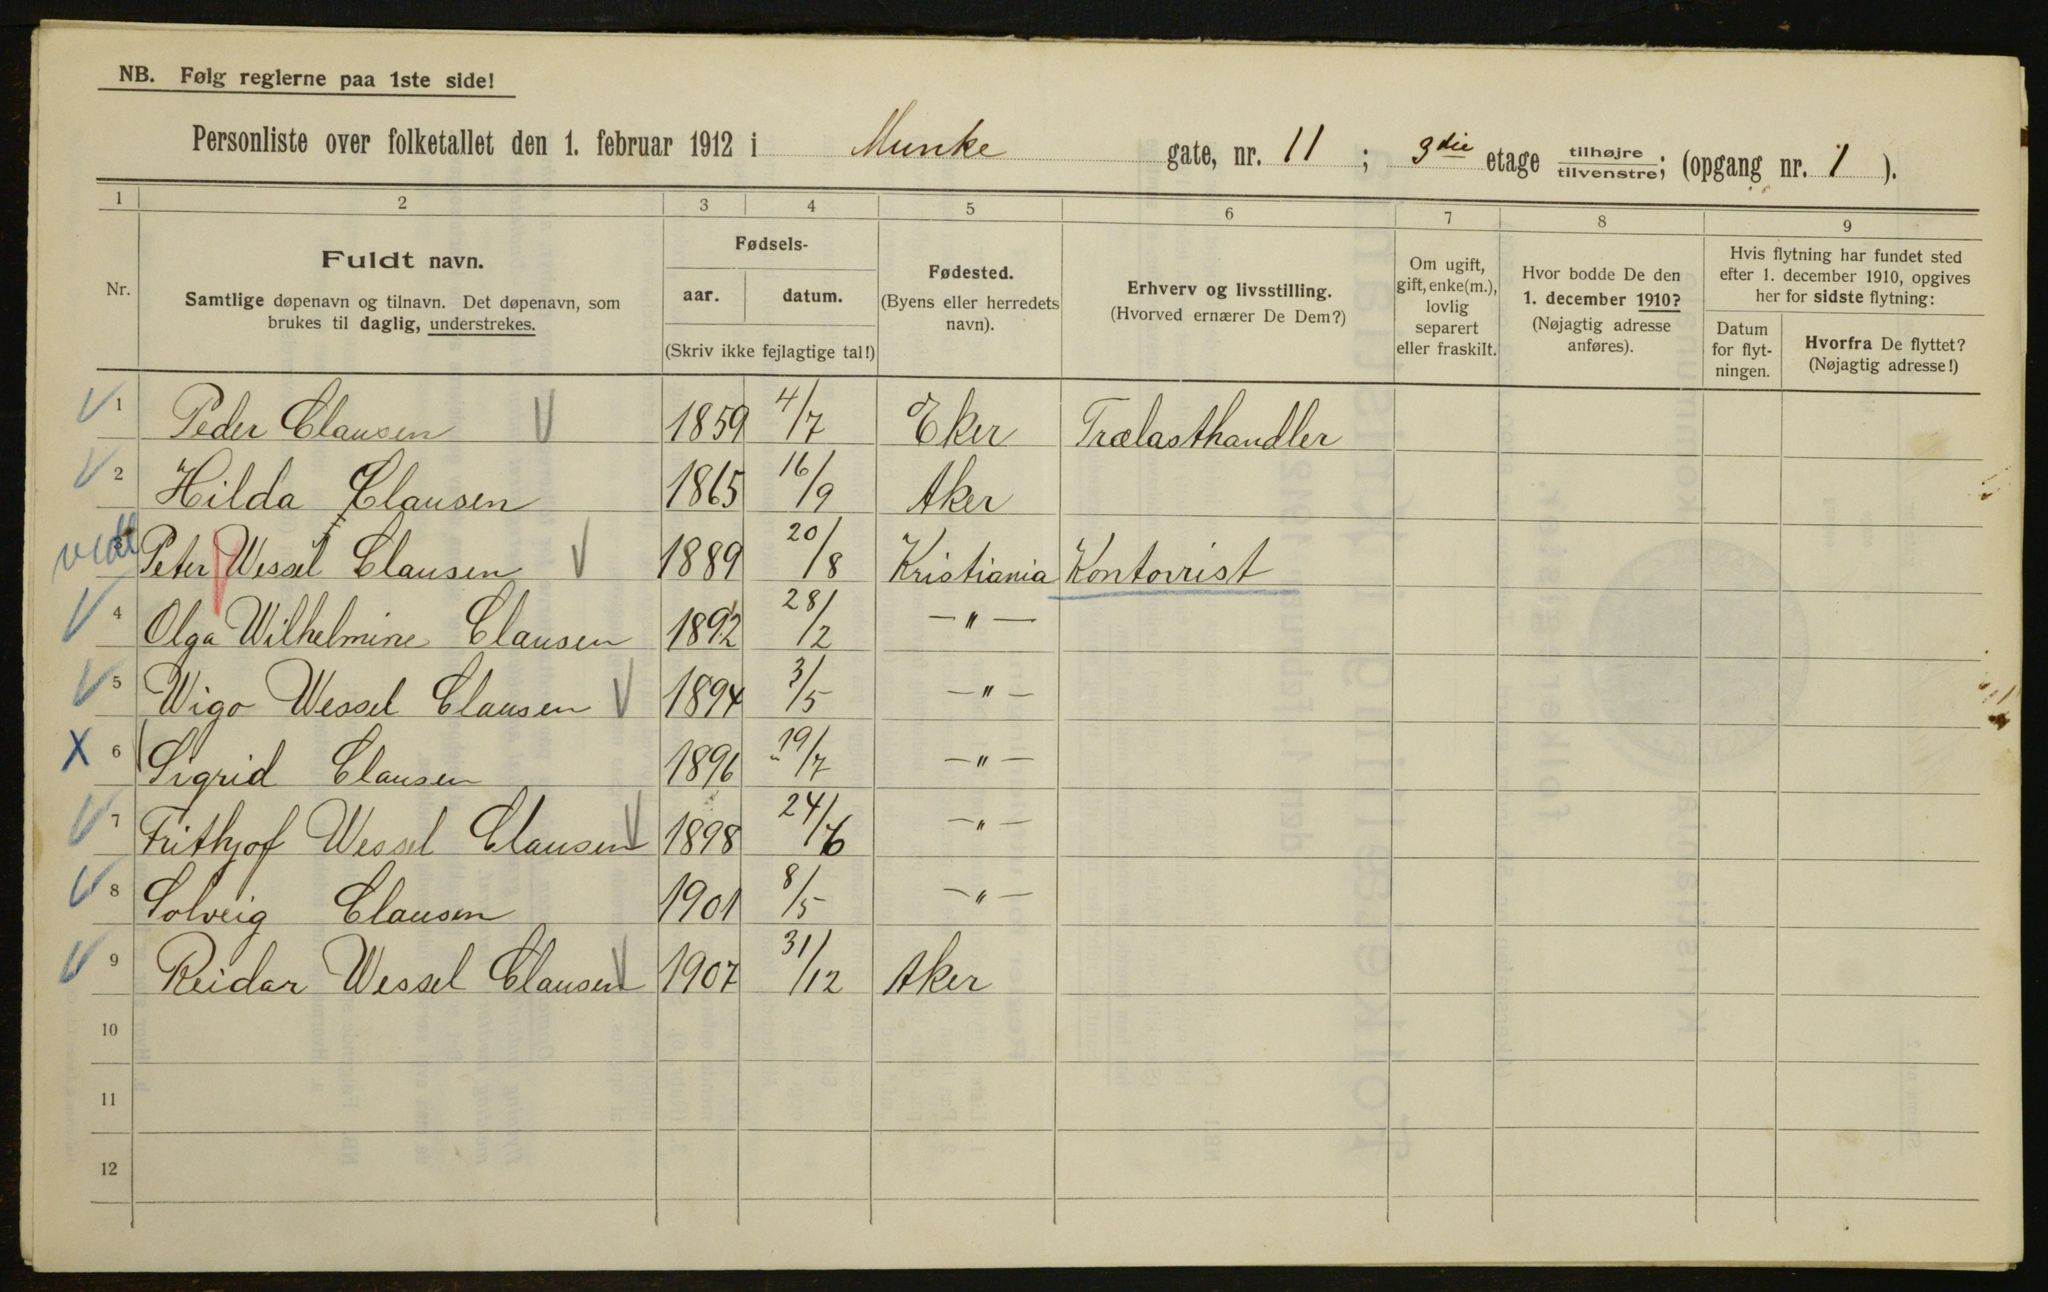 NB. Følg reglerne paa 1ste side!
Personliste over folketallet den 1. februar 1912 i Munke gate, nr. 11 ; 3die etage tilhøjre/tilvenstre; (opgang nr. 1 ).
1 2 3 4 5 6 7 8 9
Nr.
Fuldt navn.
Samtlige døpenavn og tilnavn. Det døpenavn, som
brukes til daglig, understrekes.
Fødsels-
aar. datum.
(Skriv ikke fejlagtige tal!)
Fødested.
(Byens eller herredets
navn).
Erhverv og livsstilling.
(Hvorved ernærer De Dem?)
Om ugift,
gift, enke(m.),
lovlig
separert
eller fraskilt.
Hvor bodde De den
1. december 1910?
(Nøjagtig adresse
anføres).
Hvis flytning har fundet sted
efter 1. december 1910, opgives
her for sidste flytning:
Datum
for flyt-
ningen.
Hvorfra De flyttet?
(Nøjagtig adresse!)
1 Peder Clausen 1859 4/7 Eker Trælasthandler
2 Hilda Clausen 1865 16/9 Aker
3 Peter Wessel Clausen 1889 20/8 Kristiania Kontorist
4 Olga Wilhelmine Clausen 1892 28/2 —"—
5 Wigo Wessel Clausen 1894 3/5 —"—
X 6 Sigrid Clausen 1896 19/7 —"—
7 Frithjof Wessel Clausen 1898 24/6 —"—
8 Solveig Clausen 1901 8/5 —"—
9 Reidar Wessel Clausen 1907 31/12 Aker
10
11
12